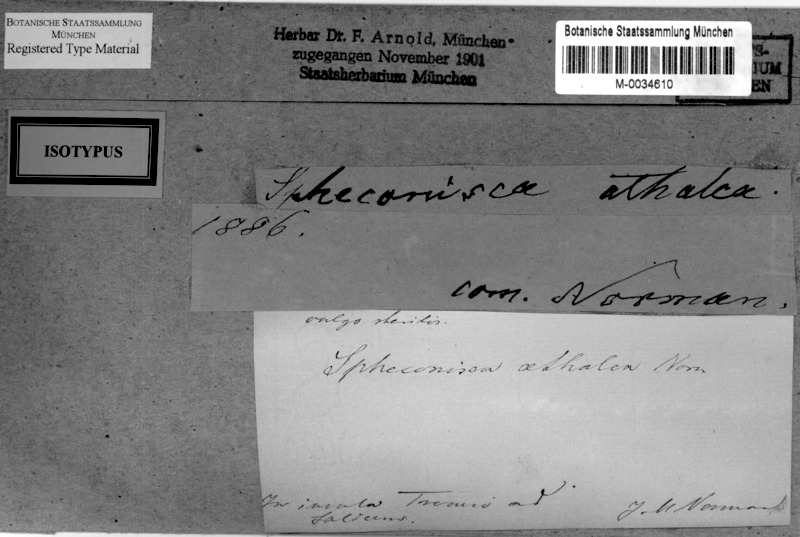 BOTANISCHE STAATSSAMMLUNG
MÜNCHEN
Registered Type Material
Herbar Dr. F. Arnold, München
zugegangen November 1901
Staatsherbarium München
Botanische Staatssammlung München
M-0034610
ISOTYPUS
Spheconisca athalea.
1886.
com. Norman.
vulgo sterilis.
Spheconisca æthalea Norm
In insula Tromsö ad
J. M Norman